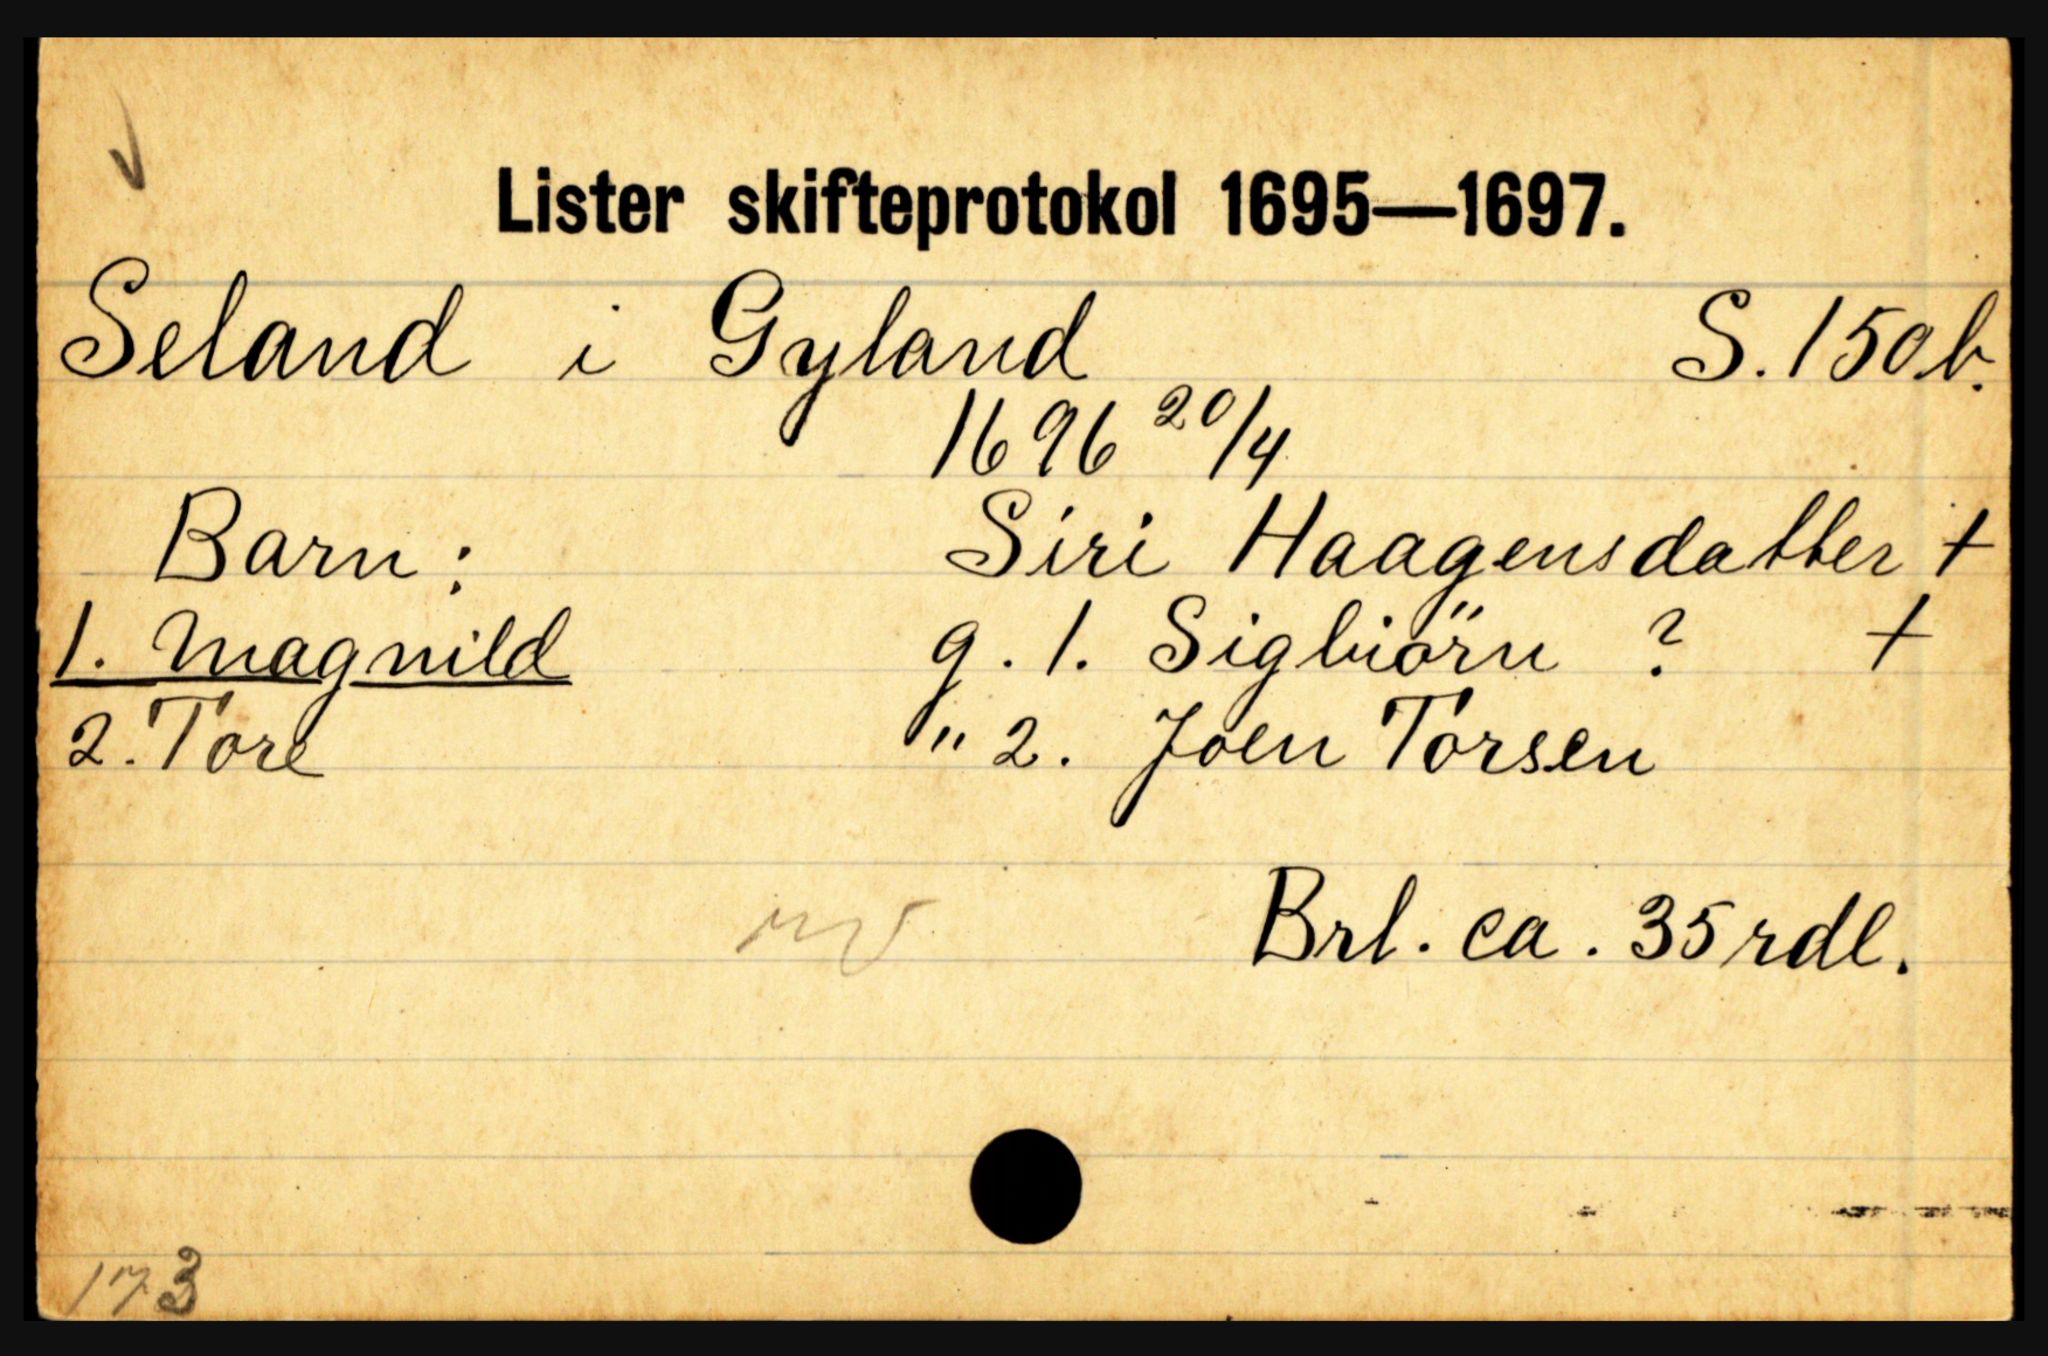 Lister skifteprotokol 1695—1697.
Seland i Gyland S. 150b.
1696 20/4
Barn: Siri Haagensdatter +
1. Magnild g. 1. Sigbiörn ? +
2. Tore " 2. Joen Torsen
Brl. ca. 35 rdl.
173